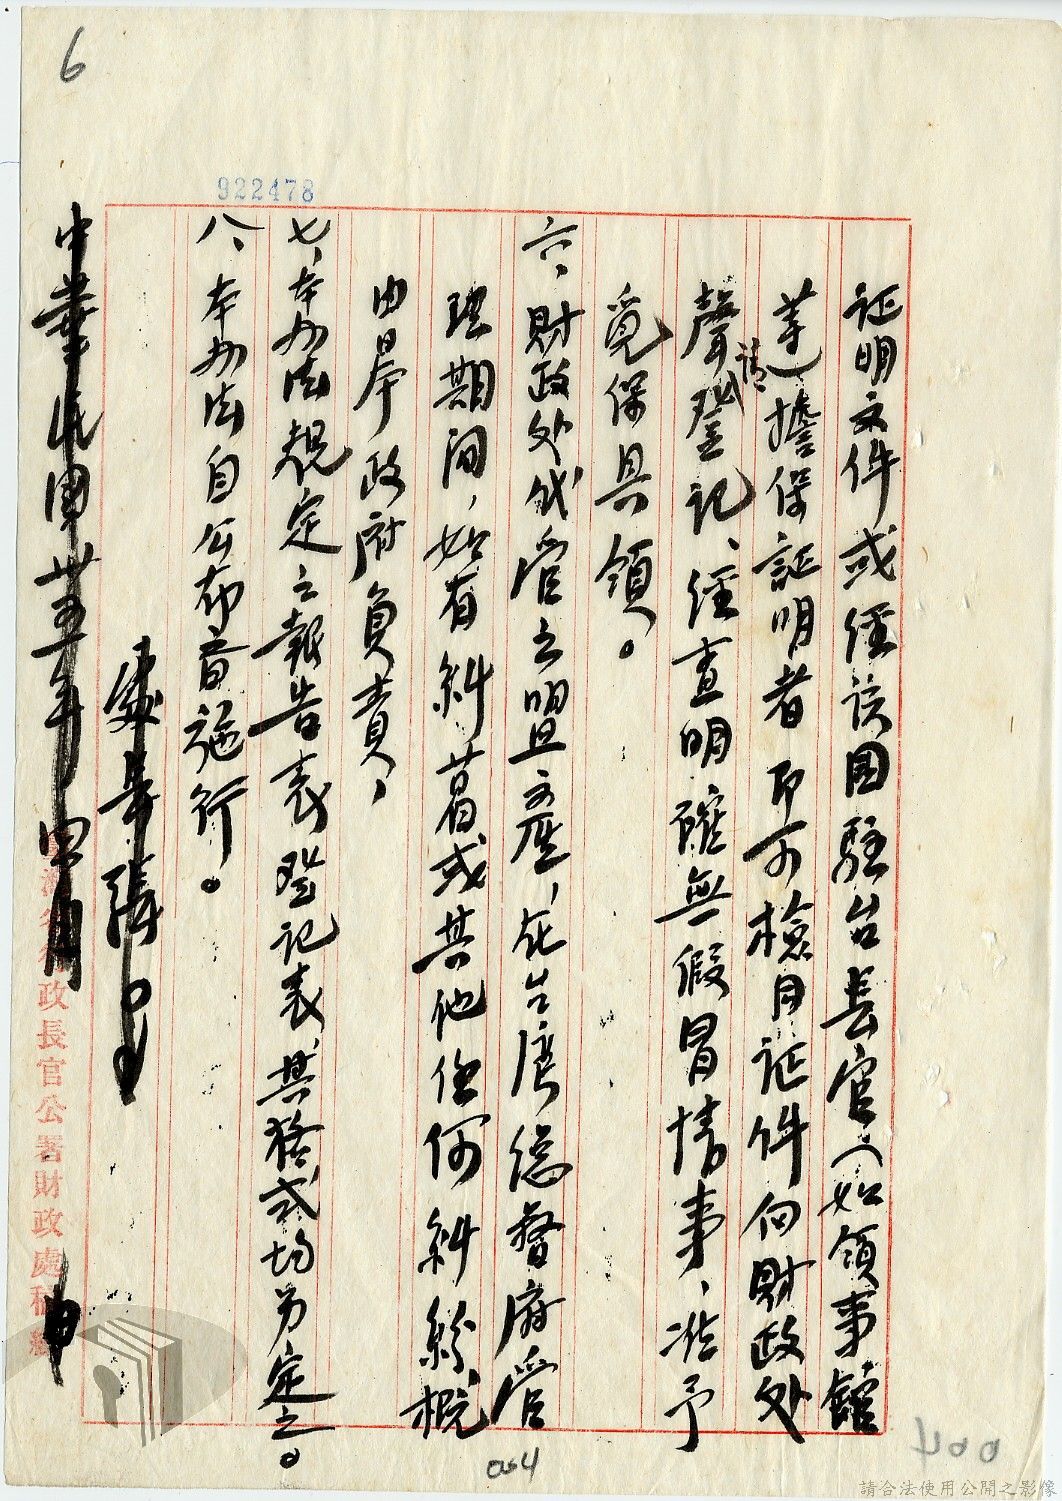 6
922478
証明文件或經該国駐台長官(如領事館
等擔保証明者即可檢同証件向財政处
聲請登記、經查明確無假冒情事、准予
覓保具領。
六、財政处代管之盟产,在台灣總督府管
理期间,如有糾葛或其他任何糾紛概
由日本政府負責,
七、本办法規定之報告表登記表其格式均另定之。
八、本办法自公布日施行。
處長張〇〇
中華民国卅五年四月 日
政長官公署財政處稿
004
400
請合法使用公開之影像